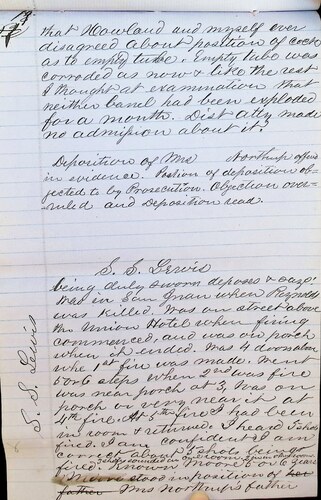 that Howland and myself ever
disagreed about position of cock
as to empty tube. Empty tube was
corroded as now & like the rest
I thought at examination that
neither barrel had been exploded
for a month. Dist Atty made
no admission about it?
Deposition of Mrs Northrup offered
in evidence. Portion of deposition ob-
jected to by Prosecution. Objection over-
ruled and Deposition read.
S. S. Lewis
S. S. Lewis
being duly sworn deposes & says:
Was in San Juan when Reynolds
was killed. Was on street above
the Union Hotel when firing
commenced, and was on porch
when it ended. Was 4 doors above
when 1st fire was made. We ran
5 or 6 steps when 2nd was fire
was near porch at 3, was on
porch or very near it at
4th fire. At 5th fire I had been
in room & returned. I heard 5 shots
fired. I am confident I am
correct about 5 shots being
fired. Known Moore 5 or 6 years
Moore stood in position of her
father Mrs Northrup's father